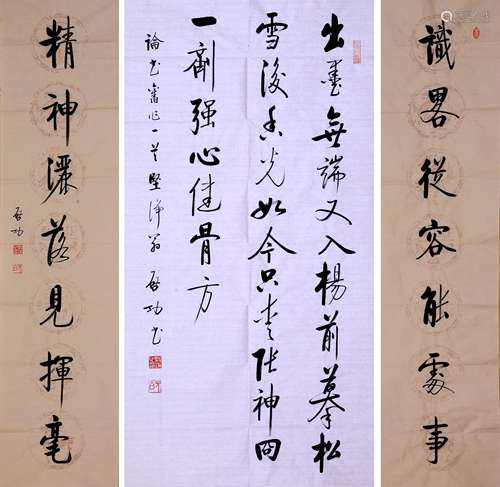 識畧從容能處事
出墨無端又入楊前摹松
雪後香光如今只愛張神冏
一劑强心健骨方
論書舊作一首堅淨翁啟功書
精神灑落見揮毫
啟功